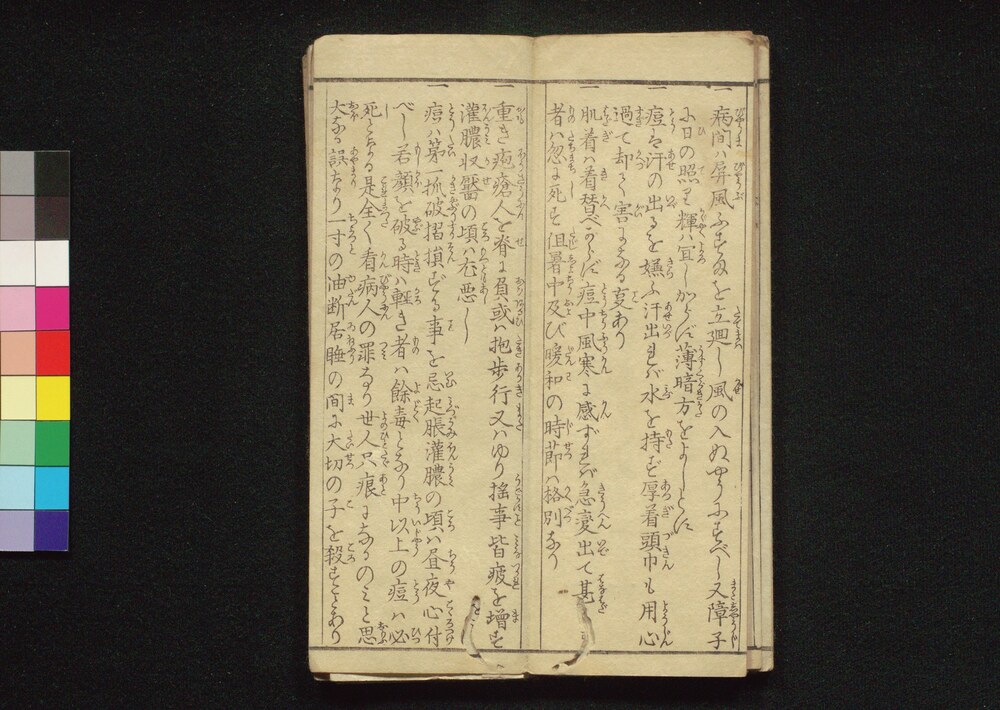 一 病間ハ屏風ふすまを立廻し風の入ぬやうにすべし又障子
に日の照す輝ハ宜しからず薄暗方をよしとす
一 痘ハ汗の出るを嫌ふ汗出れバ水を持ず厚着頭巾も用心
過て却て害になる事あり
一 肌着ハ着替べからず痘中風寒に感ずれバ急変出て甚
者ハ忽に死す但暑中及び暖和の時節ハ格別なり
一 重き疱瘡人を脊に負或ハ抱歩行又ハゆり揺事皆疲を増す
灌膿収靨の頃ハ尤悪し
一 痘ハ第一抓破摺損ずる事を忌起脹灌膿の頃ハ昼夜心付
べし若顔を破る時ハ軽き者ハ餘毒となり中以上の痘ハ必
死となる是全く看病人の罪なり世人只痕になるのミと思
大なる誤なり一寸の油断居睡の間に大切の子を殺すことあり